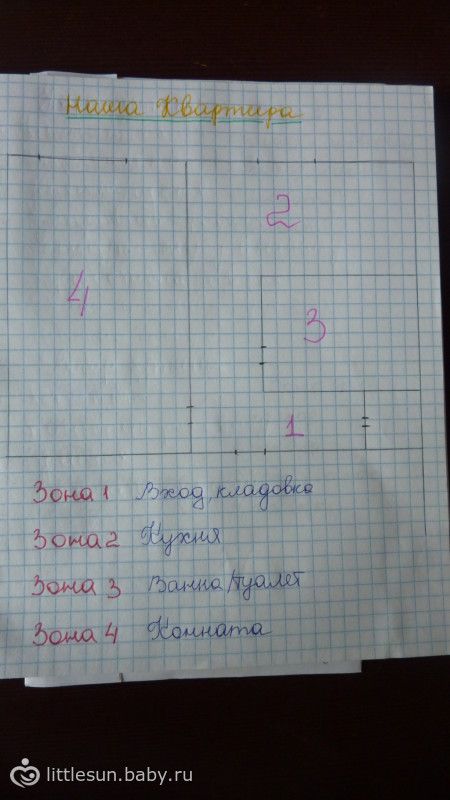 Наша Квартира
2
4
3
1
Зона 1 Вход, кладовка
Зона 2 Кухня
Зона 3 Ванна/туалет
Зона 4 Комната
littlesun.baby.ru